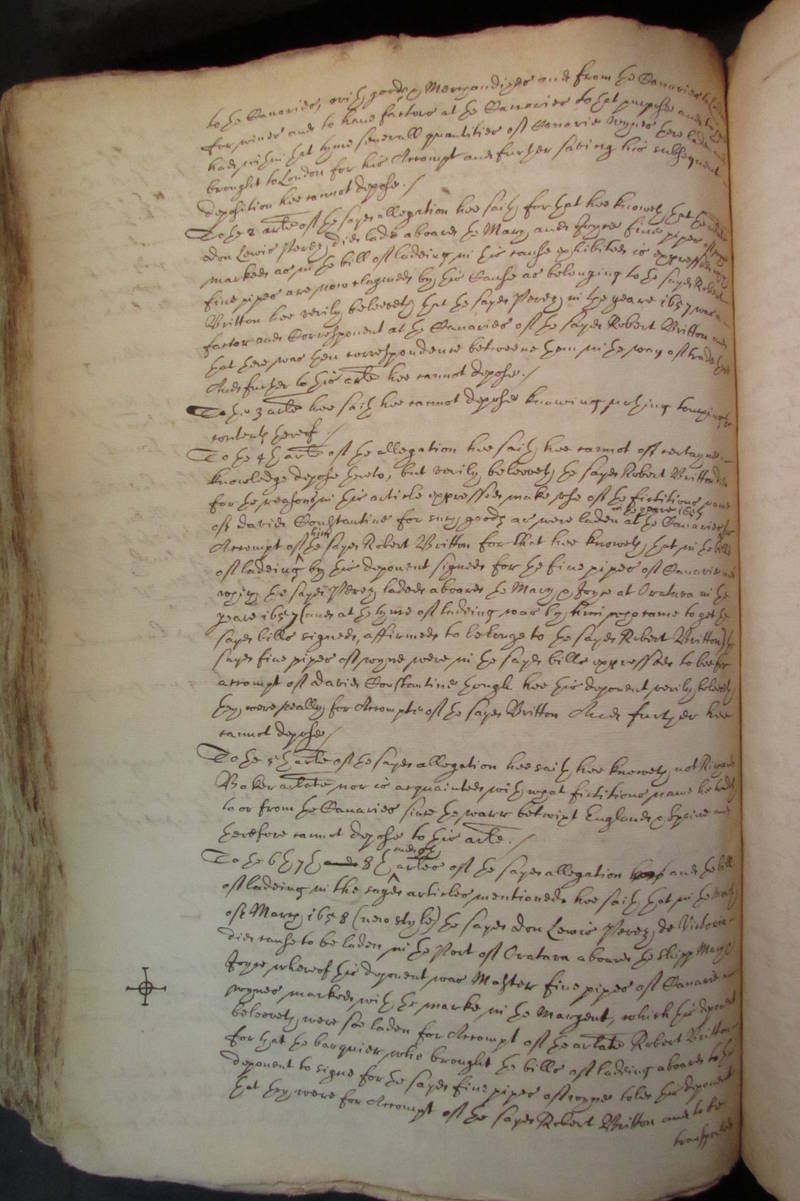 to the Canaries, with goods & Merchandizes and from the Canaries to London
for wines and to have factors at the Canaries to that purpose and
had within that tyme severall quantities of Canarie wynes here laden and
brought to London for his Accompt and further saving his subsequent
deposition hee cannot depose./
To the 2 arte of the sayd allegation hee saith for that hee knoweth that the sayd
don Lewis Perez did lade aboard the Mary and Joyce five pipes of wyne
marked as in the bill of ladeing in this cause exhibited is expressed
five pipes are now claymed by this Cause as belonging to the sayd Robert
Britton hee verily beleeveth that the sayd Perez in the yeare 1657 was a
factor and Correspondent at the Canaries of the sayd Robert Britton and
that there was then correspondence betweene them in the way of trade
And further to this arte hee cannot depose./
To the 3 arte hee saith hee cannot depose knowing nothing touching the
contents thereof./
To the 4th arte of the allegation hee saith hee cannot of certayne
knowledge depose hereto, but verily beleeveth the sayd Robert Britton did
for the reasons in this article expressed make use of the fictitious name
of david Constantine for such goods as were laden in the yeare 1657 at the Canaries for
Accompt of the sayd Robert Britton for that hee knoweth that in the bills
of ladeing by him this deponent signed for the five pipes of Canarie
which the sayd Perez laded aboard the Mary & Joyce at Oratava in the
yeare 1657 (and at the tyme of ladeing was by him who came to get the
sayd bills signed, affirmed to belonge to the sayd Robert Britton) the
sayd five pipes of wyne were in the sayd bills expressed to bee for
accompt of david Constantine though hee this deponent verily beleeveth
they were really for Accompt of the sayd Britton And further hee
cannot depose/
To the 5th arte of the sayd allegation hee saith hee knoweth not Richard
Baker artate nor is acquainted with what fictitious name he used
to or from the Canaries since the warr betwixt England & Spaine and
therefore cannot depose to this arte./
To the 6th 7th 8th and 9th artes of the sayd allegation and the bill
of ladeing in the sayd articles mentioned hee saith that in the moneth
of March 1658 (new style) the sayd don Lewis Perez de Victoria
did cause to be laden in the Port of Oratava aboard the shipp Mary
Joyce whereof this deponent was Master five pipes of Canarie
wynes marked with the marke in the Margent, which this deponent
beleeveth were soe laden for Accompt of the artate Robert Britton
for that the barquier who brought the bills of ladeing aboard to this
deponent to signe for the sayd five pipes of wynes told this deponent
that they were for Accompt of the sayd Robert Britton and to be
transported